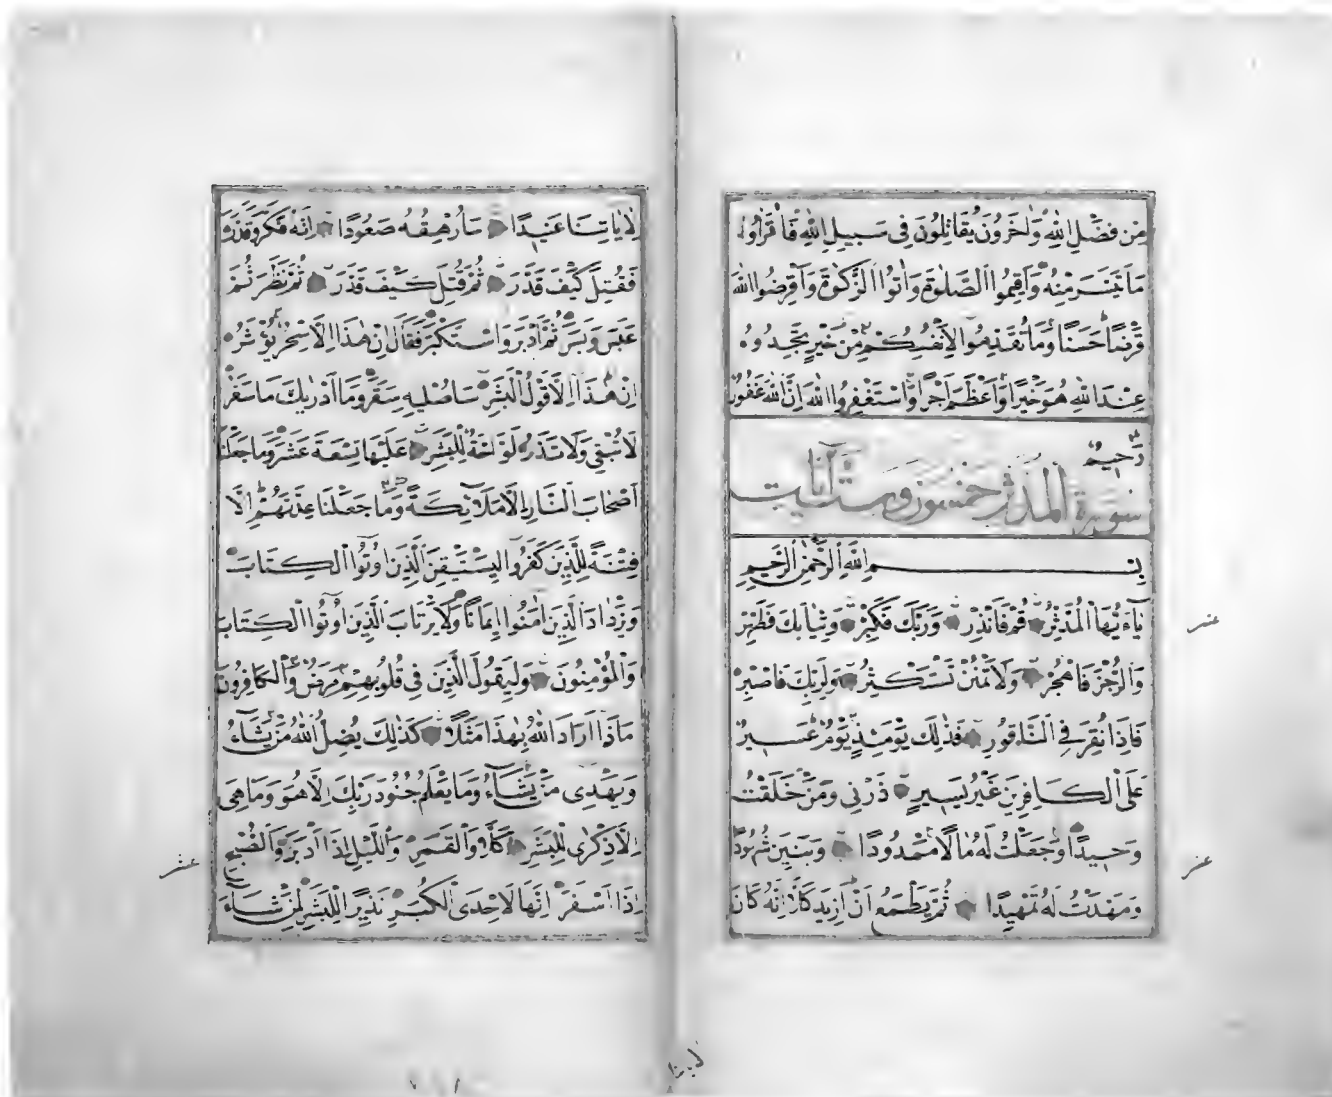 مِنْ فَضْلِ اللّٰهِ وَاٰخَرُونَ يُقَاتِلُونَ فِى سَبِيلِ اللّٰهِ فَاقْرَاُوا
مَا تَيَسَّرَ مِنْهُ وَاَقِيمُوا الصَّلٰوةَ وَاٰتُوا الزَّكٰوةَ وَاَقْرِضُوا اللّٰهَ
قَرْضًا حَسَنًا وَمَا تُقَدِّمُوا لِاَنْفُسِكُمْ مِنْ خَيْرٍ تَجِدُوهُ
عِنْدَ اللّٰهِ هُوَ خَيْرًا وَاَعْظَمَ اَجْرًا وَاسْتَغْفِرُوا اللّٰهَ اِنَّ اللّٰهَ غَفُورٌ
رَحِيمٌ
سورة المدثر خمسون وست آيات
بِسْمِ اللّٰهِ الرَّحْمٰنِ الرَّحِيمِ
يَاءَيُّهَا الْمُدَّثِّرُ قُمْ فَاَنْذِرْ وَرَبَّكَ فَكَبِّرْ وَثِيَابَكَ فَطَهِّرْ
وَالرُّجْزَ فَاهْجُرْ وَلَا تَمْنُنْ تَسْتَكْثِرُ وَلِرَبِّكَ فَاصْبِرْ
فَاِذَا نُقِرَ فِى النَّاقُورِ فَذٰلِكَ يَوْمَئِذٍ يَوْمٌ عَسِيرٌ
عَلَى الْكَافِرِينَ غَيْرُ يَسِيرٍ ذَرْنِى وَمَنْ خَلَقْتُ
وَحِيدًا وَجَعَلْتُ لَهُ مَالًا مَمْدُودًا وَبَنِينَ شُهُودًا
وَمَهَّدْتُ لَهُ تَمْهِيدًا ثُمَّ يَطْمَعُ اَنْ اَزِيدَ كَلَّا اِنَّهُ كَانَ
عشر
عشر
لِاٰيَاتِنَا عَنِيدًا سَاُرْهِقُهُ صَعُودًا اِنَّهُ فَكَّرَ وَقَدَّرَ
فَقُتِلَ كَيْفَ قَدَّرَ ثُمَّ قُتِلَ كَيْفَ قَدَّرَ ثُمَّ نَظَرَ ثُمَّ
عَبَسَ وَبَسَرَ ثُمَّ اَدْبَرَ وَاسْتَكْبَرَ فَقَالَ اِنْ هٰذَا اِلَّا سِحْرٌ يُؤْثَرُ
اِنْ هٰذَا اِلَّا قَوْلُ الْبَشَرِ سَاُصْلِيهِ سَقَرَ وَمَا اَدْرٰيكَ مَا سَقَرُ
لَا تُبْقِى وَلَا تَذَرُ لَوَّاحَةٌ لِلْبَشَرِ عَلَيْهَا تِسْعَةَ عَشَرَ وَمَا جَعَلْنَا
اَصْحَابَ النَّارِ اِلَّا مَلٰئِكَةً وَمَا جَعَلْنَا عِدَّتَهُمْ اِلَّا
فِتْنَةً لِلَّذِينَ كَفَرُوا لِيَسْتَيْقِنَ الَّذِينَ اُوتُوا الْكِتَابَ
وَيَزْدَادَ الَّذِينَ اٰمَنُوا اِيمَانًا وَلَا يَرْتَابَ الَّذِينَ اُوتُوا الْكِتَابَ
وَالْمُؤْمِنُونَ وَلِيَقُولَ الَّذِينَ فِى قُلُوبِهِمْ مَرَضٌ وَالْكَافِرُونَ
مَاذَا اَرَادَ اللّٰهُ بِهٰذَا مَثَلًا كَذٰلِكَ يُضِلُّ اللّٰهُ مَنْ يَشَاءُ
وَيَهْدِى مَنْ يَشَاءُ وَمَا يَعْلَمُ جُنُودَ رَبِّكَ اِلَّا هُوَ وَمَا هِىَ
اِلَّا ذِكْرٰى لِلْبَشَرِ كَلَّا وَالْقَمَرِ وَاللَّيْلِ اِذَا اَدْبَرَ وَالصُّبْحِ
اِذَا اَسْفَرَ اِنَّهَا لَاِحْدَى الْكُبَرِ نَذِيرًا لِلْبَشَرِ لِمَنْ شَاءَ
عشر